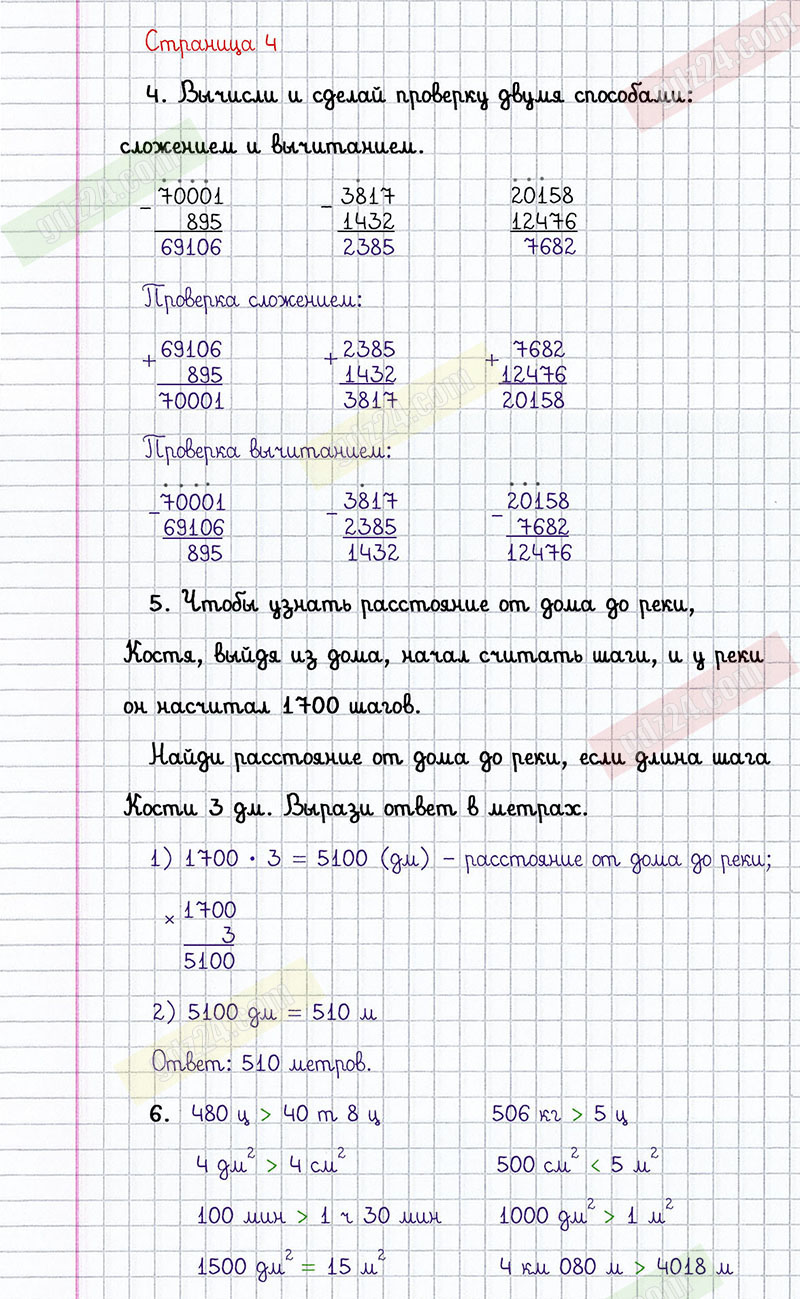 Страница 4
4. Вычисли и сделай проверку двумя способами:
сложением и вычитанием.
- 70001 - 3817 20158
895 1432 12476
69106 2385 7682
Проверка сложением:
+ 69106 + 2385 + 7682
895 1432 12476
70001 3817 20158
Проверка вычитанием:
- 70001 - 3817 - 20158
69106 2385 7682
895 1432 12476
5. Чтобы узнать расстояние от дома до реки,
Костя, выйдя из дома, начал считать шаги, и у реки
он насчитал 1700 шагов.
Найди расстояние от дома до реки, если длина шага
Кости 3 дм. Вырази ответ в метрах.
1) 1700 · 3 = 5100 (дм) - расстояние от дома до реки;
× 1700
3
5100
2) 5100 дм = 510 м
Ответ: 510 метров.
6. 480 ц > 40 т 8 ц 506 кг > 5 ц
4 дм² > 4 см² 500 см² < 5 м²
100 мин > 1 ч 30 мин 1000 дм² > 1 м²
1500 дм² = 15 м² 4 км 080 м > 4018 м
gdz24.com
gdz24.com
gdz24.com
gdz24.com
gdz24.com